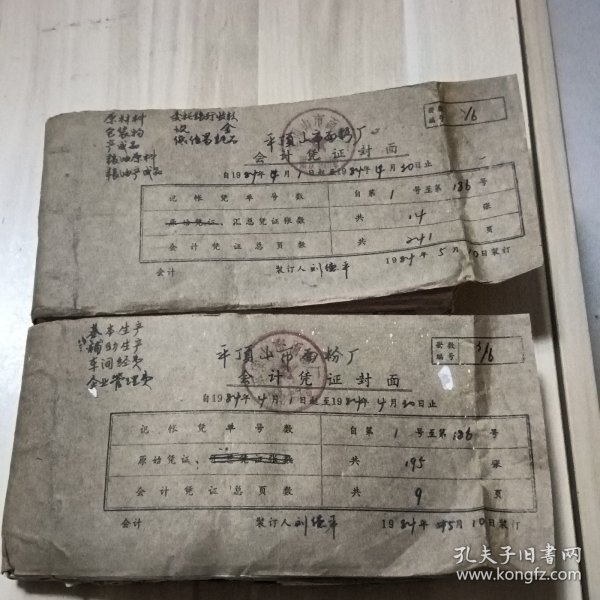 原材料
包装物
产成品
粮油原料
粮油产成品
委托银行收款
现金
低值易耗品
平顶山市面粉厂
会计凭证封面
册数
编号
1/6
自1984年4月1日起至1984年4月30日止
记帐凭单号数 自第1号至第136号
原始凭证、汇总凭证张数 共14张
会计凭证总页数 共241页
会计 装订人 刘德平 1984年5月10日装订
基本生产
辅助生产
车间经费
企业管理费
平顶山市面粉厂
会计凭证封面
册数
编号
3/6
自1984年4月1日起至1984年4月30日止
记帐凭单号数 自第1号至第136号
原始凭证、汇总凭证张数 共195张
会计凭证总页数 共9页
会计 装订人 刘德平 1984年5月10日装订
孔夫子旧书网
www.kongfz.com